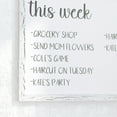 this week
-GROCERY SHOP
-SEND MOM FLOWERS
-COLE'S GAME
-HAIRCUT ON TUESDAY
-KATE'S PARTY